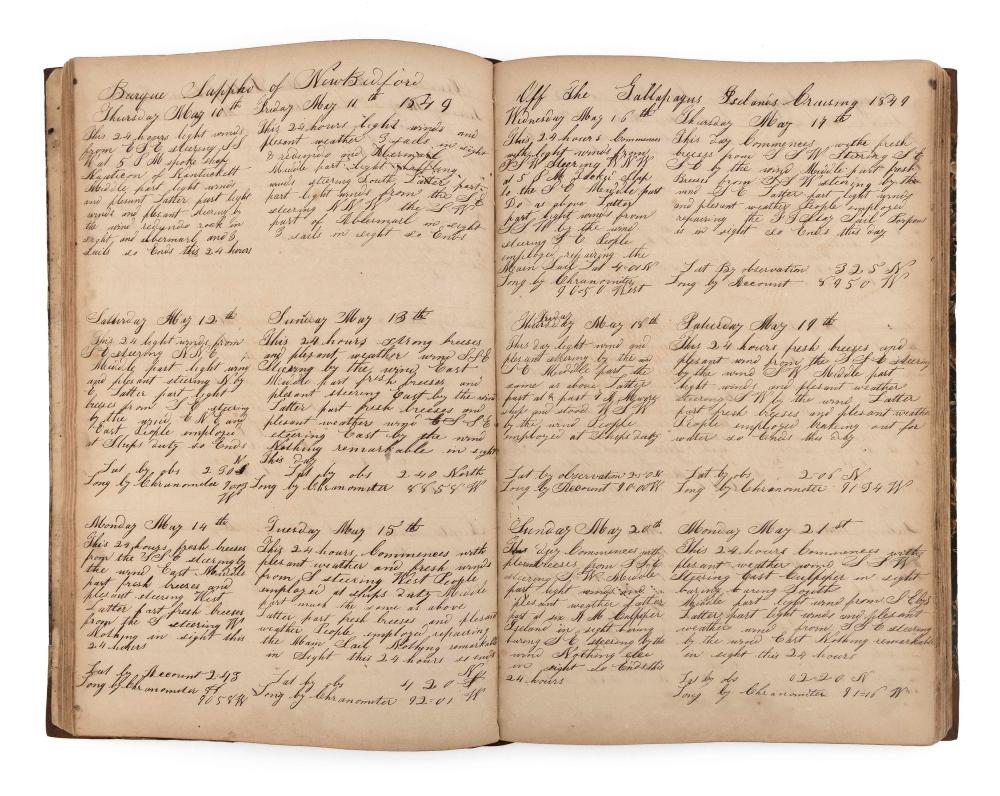 Barque Sappho of New Bedford
Thursday May 10th
This 24 hours light winds
from ESE steering SS
W at 5 PM spoke ship
of Nantuckett
Middle part light winds
and plesant Latter part light
winds and plesant steering by
the wind redondo rock in
sight, and Abermarl, and 3
sails so Ends this 24 hours
Friday May 11th 1849
This 24 hours light winds and
plesant weather 3 sails in sight
redondo and Abermarl
Middle part light
winds steering South Latter part
part light winds from the SSE
steering NNW the SW
part of Abermarl in sight
3 sails in sight so Ends
Satturday May 12th
This 24 light winds from
SE steering NNE
Middle part light wind
and plesant steering N by
E Latter part light
breezes from SE steering
by the wind ENE and
East People employed
at Ships duty so Ends
Lat by obs 2 30 N
Long by Chranometer
W
Sunday May 13th
This 24 hours strong breezes
and plesant weather wind SSE
Steering by the wind East
Middle part fresh breezes and
plesant steering East by the wind
Latter part fresh breezes and
plesant weather wind SSE
steering East by the wind
Nothing remarkable in sight
This day
Lat by obs 2 40 North
Long by Chranometer 88 58 W
Monday May 14th
This 24 hours fresh breezes
from the SSE steering by
the wind East Middle
part fresh breezes and
plesant steering West
Latter part fresh breezes
from the S steering W
Nothing in sight this
24 hours
Lat by Account 2-43
Long by Chranometer
90 58 W
Tuesday May 15th
This 24 hours Commences with
plesant weather and fresh winds
from S steering West People
employed at ships duty Middle
part much the same as above
Latter part fresh breezes and plesant
weather People employed repairing
the Main Sail Nothing remarkable
in Sight this 24 hours so ends
Lat by obs 4 20 N
Long by Chranometer 92-01 W
Off The Gallapagus Iselands Cruising 1849
Wednesday May 16th
This 24 hours Commences
with light winds from
SSW Steering WNW
at 5 PM Ship
to the SE Middle part
Do as above Latter
part light winds from
SSW by the wind
steering SE People
employe repairing the
Main Sail Lat 4-01 N
Long by Chranometer
90-50 West
Thursday May 17th
This day Commences with fresh
breezes from SSW Steering SE
SE by the wind Middle part fresh
Breezes from SSW steering by the
wind SE Latter part light winds
and plesant weather People employed
repairing the Sail
is in sight so Ends this day
Lat By observation 3 25 N
Long by Account 89 50 W
Friday May 18th
This day light wind and
plesant steering by the wind
SE Middle part the
same as above Latter
part at past 4
ship and stood WSW
by the wind People
employed at Ships duty
Lat by observation 2-50 N
Long by Account 90-00 W
Saturday May 19th
This 24 hours fresh breezes and
plesant wind from the SSE steering
by the wind SW Middle part
light winds and plesant weather
steering SW by the wind Latter
part fresh breezes and plesant weather
People employed braking out for
water so Ends this day
Lat by obs 2-06 N
Long by Chranometer 91 34 W
Sunday May 20th
This day Commences with
plesant breezes from SSE
steering SW Middle
part light winds and
plesant weather Latter
part at six AM Culpper
Iseland in sight baring
baring SE steering by the
wind Nothing else
in sight so Ends this
24 hours
Monday May 21st
This 24 hours Commences with
plesant weather wind SSW
Steering East Culpper in sight
baring baring South
Middle part light wind from S
Latter part light winds and plesant
weather wind from SE steering
by the wind East Nothing remarkable
in sight this 24 hours
Lat by obs 02-20 N
Long by Chranometer 91-16 W